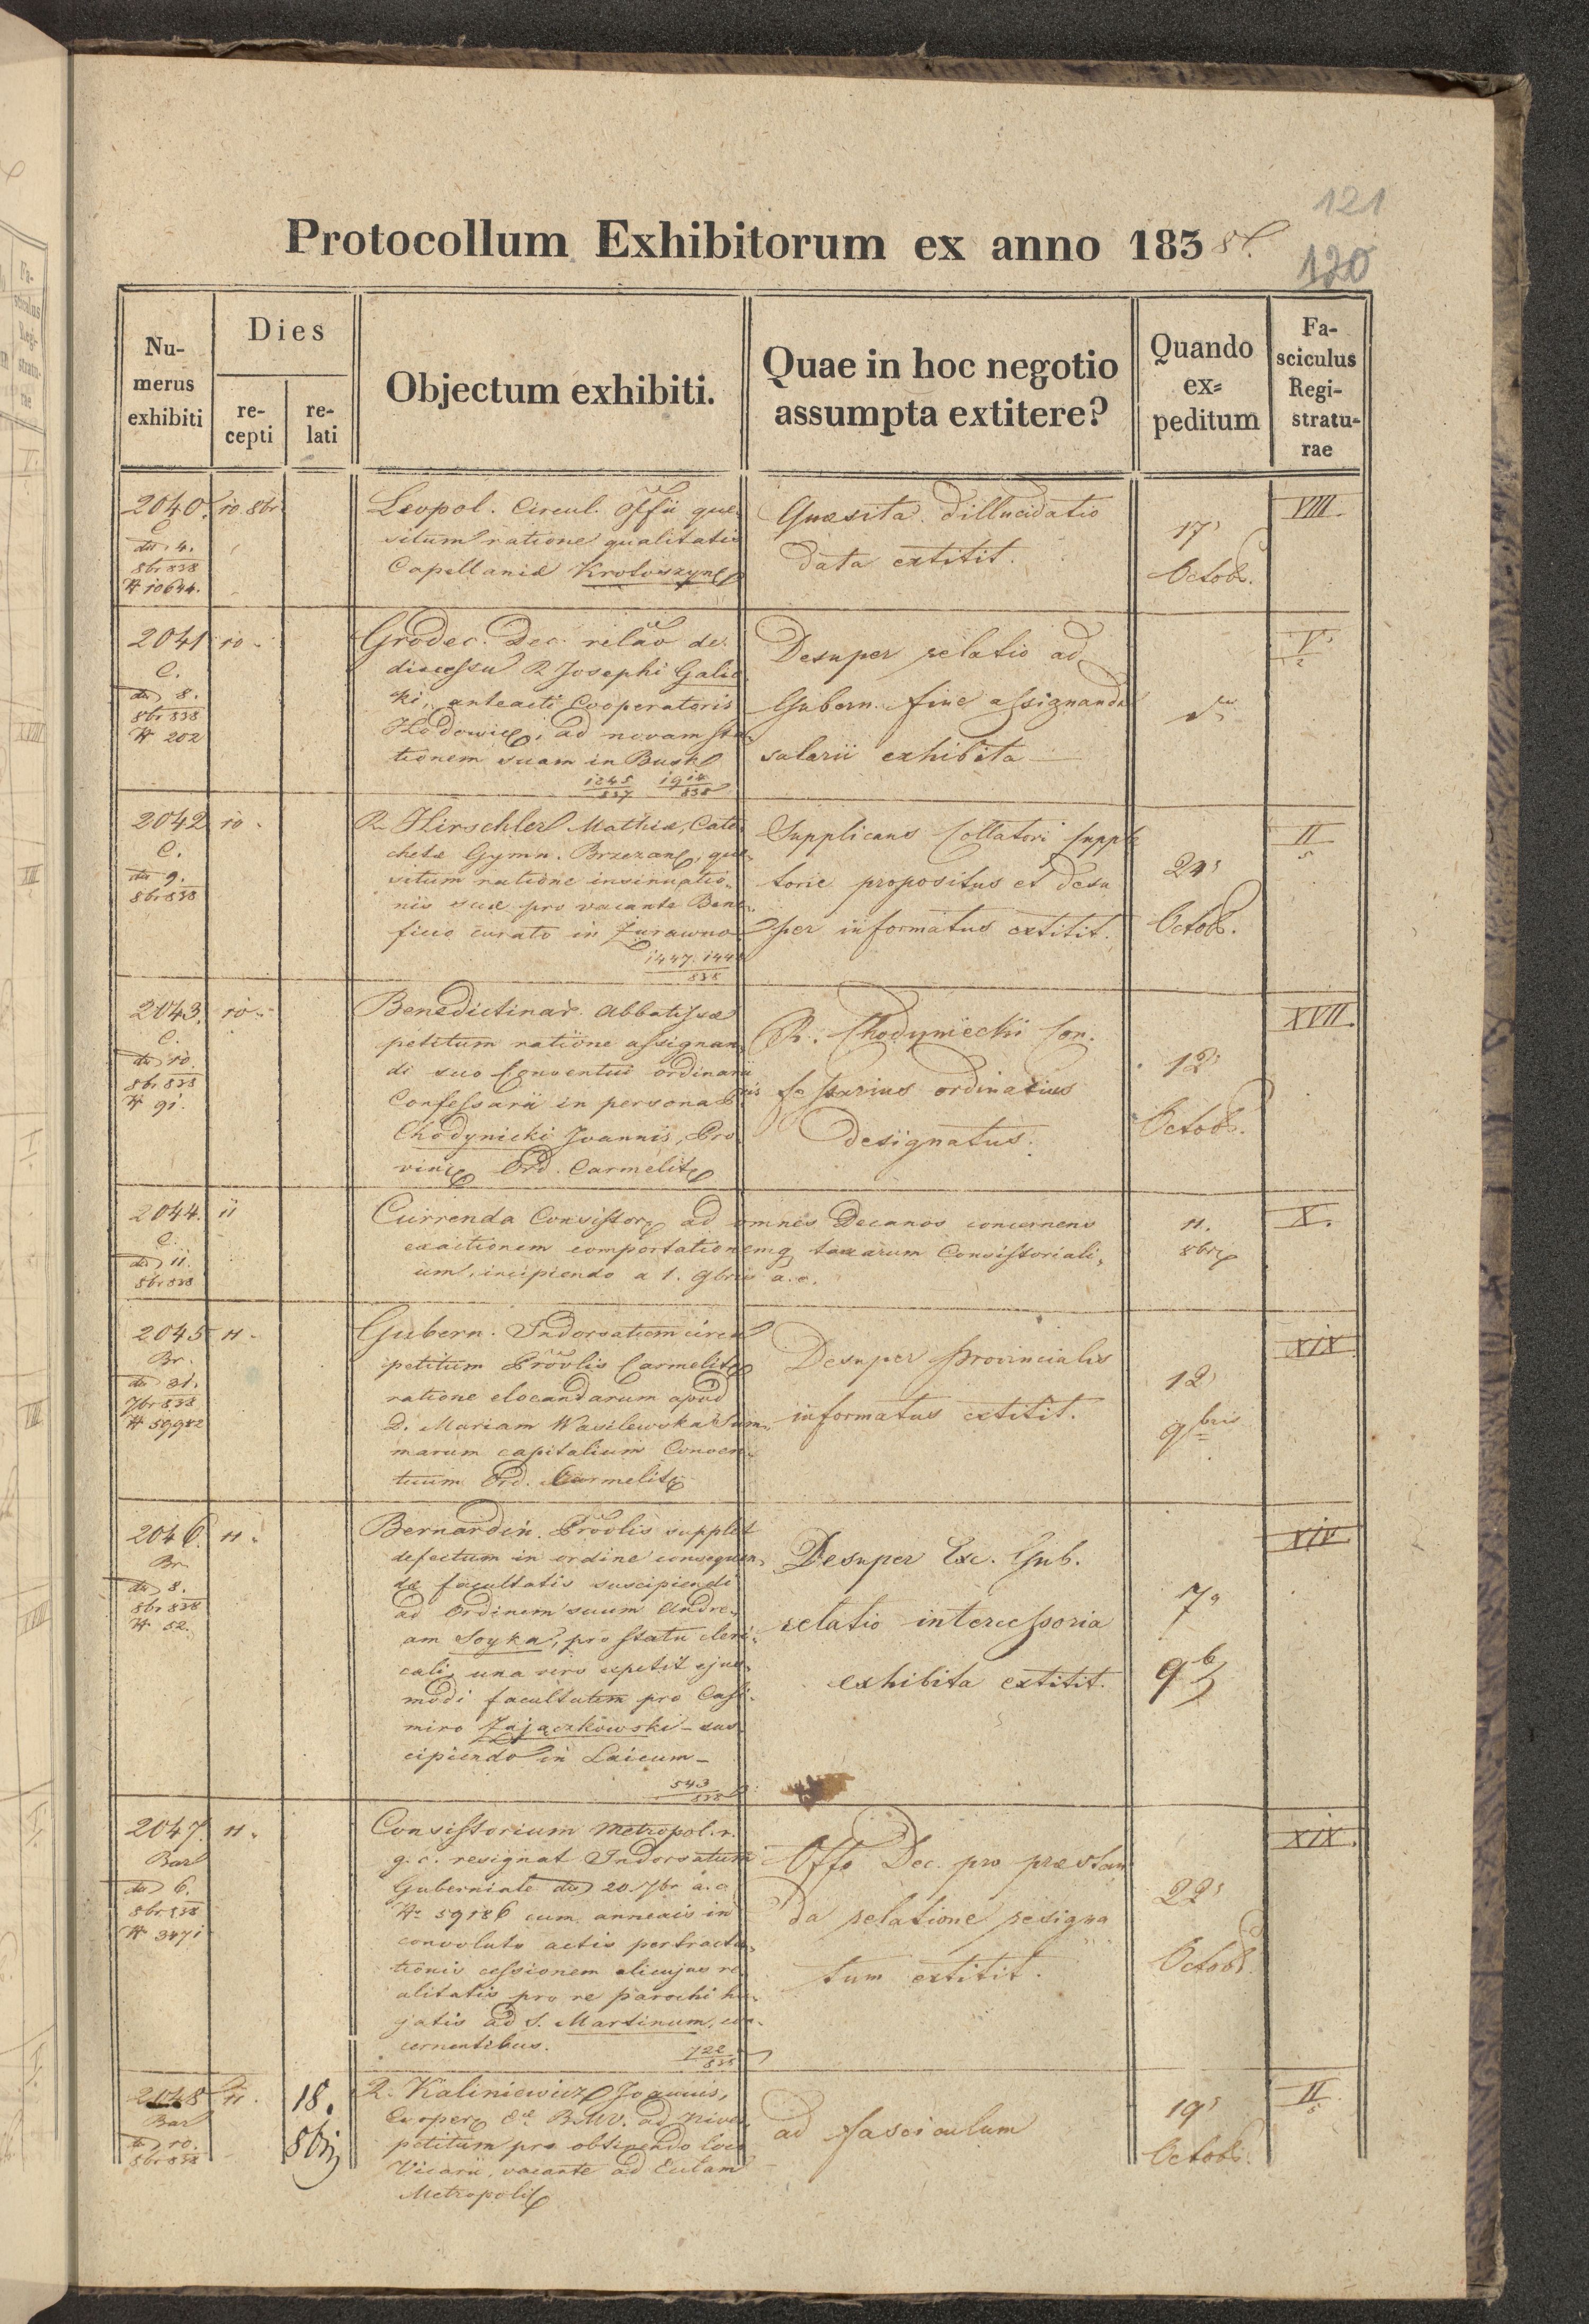 121
Protocollum Exhibitorum ex anno 1838.
120
Nu-
merus
exhibiti
Dies
re-
cepti
re-
lati
Objectum exhibiti.
Quae in hoc negotio
assumpta extitere?
Quando
ex=
peditum
Fa-
sciculus
Regi-
stratu-
rae
2040.
C
dto 4.
8br 838
N 10644.
10 8br
Leopol. Circul. Offii que-
situm ratione qualitatis
Capellaniae Krotoszyn
Quaesita dillucidatio
data extitit.
17
Octob.
VIII.
2041
C.
dto 8.
8br 838
N 202
10
Grodec. Dec. relao de
discessu R Josephi Galic
ki, anteacti Cooperatoris
Hodowic, ad novam sta-
tionem suam in Busk
1245 1914
837 838
Desuper relatio ad
Gubern. fine assignandi
salarii exhibita
V
2
2042
C.
dto 9.
8br 838
10
R. Hirschler Mathiae, Cate-
chetae Gymn. Brzezan, que-
situm ratione insinuatio-
nis suae pro vacante Bene-
ficio curato in Żurawno
1447. 144
838
Supplicans Collatori supple
torie propositus et desu
per informatus extitit.
24
Octob.
II
5
2043.
C.
dto 10.
8br 838
N 91.
10
Benedictinar. Abbatissae
petitum ratione assignan-
di suo Conventui ordinarii
Confessarii in persona
Chodynicki Joannis, Pro
vinc Ord. Carmelit
R. Chodyniecki Con-
fessarius ordinarius
designatus.
12
Octob.
XVII.
2044.
C.
dto 11.
8br 838
11
Currenda Consistor ad omnes Decanos concernens
exactionem comportationemq taxarum Consistoriali-
um, incipiendo a 1. 9bris a. c.
11.
8bris
X.
2045
Br.
dto 21.
7br 838
N 59982
11
Gubern. Indorsatum circa
petitum Provlis Carmelit
ratione elocandarum apud
D. Mariam Wasilewska Sum-
marum capitalium Conven-
tuum Ord. Carmelit
Desuper Provincialis
informatus extitit.
12
9bris
XIX
2046.
Br.
dto 8.
8br 838
N 52.
11
Bernardin. Provlis supplet
defectum in ordine consequen-
dae facultatis suscipiendi
ad Ordinem suum Andre-
am Soyka, pro statu cleri-
cali, una vero expetit ejus-
modi facultatem pro Casi-
miro Zajączkowski - sus-
cipiendo in Laicum -
543
838
Desuper Exc. Gub.
relatio intercessoria
exhibita extitit.
7
9b
XIX
2047.
Bar
dto 6.
8br 838
N 3471
11
Consistorium Metropol. r.
g. c. resignat Indorsatum
Guberniale dto 20. 7br a. c.
N 59186 cum annexis in
convoluto actis pertracta-
tionis cessionem alicujus re-
alitatis pro re parochi hu-
jatis ad S. Martinum, con-
cernentibus.
722
838
Offo Dec. pro praestan
da relatione resigna
tum extitit.
22
Octob.
XIX.
2048
Bar
dto 10.
8br 838
11.
18.
8bris
R. Kaliniewicz Joannis,
Cooper BMV. ad Nives
petitum pro obtinendo loco
Vicarii, vacante ad Eccl.am
Metropolit
ad fasciculum
19
Octob.
II
5